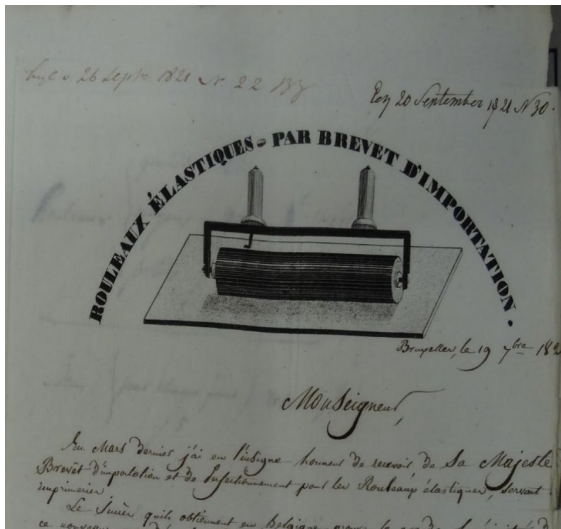 26 Septb. 1821 N. 22 B3
Ex 20 September 1821 N 30.
ROULEAUX ÉLASTIQUES = PAR BREVET D'IMPORTATION.
Bruxelles, le 19 7bre 182
Monseigneur,
En Mars dernier j'ai eu l'insigne honneur de recevoir de Sa Majesté
Brevet d'importation et de perfectionnement pour les Rouleaux élastiques, servant
imprimerie
Le Succès qu'ils obtiennent en Belgique
ce nouveau